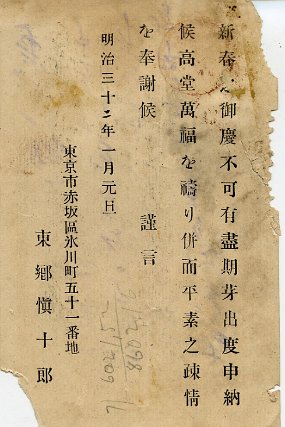 新春之御慶不可有盡期芽出度申納
候高堂萬福を禱り併而平素之疎情
を奉謝候　謹言
明治三十二年一月元旦
東京市赤坂區氷川町五十一番地
東郷愼十郎